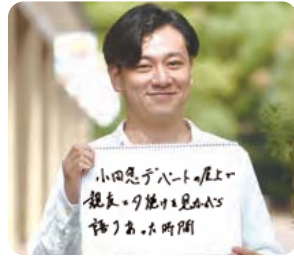 小田急デパートの屋上で
親友と夕焼けを見ながら
語りあった時間